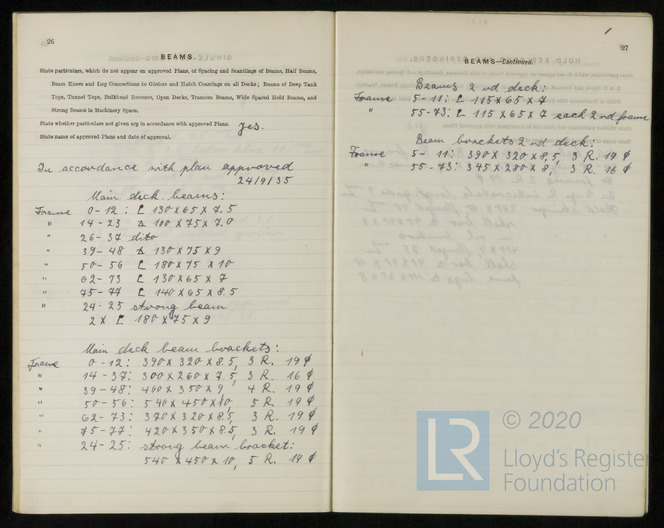 26
BEAMS.
State particulars, which do not appear on approved Plans, of Spacing and Scantlings of Beams, Half Beams,
Beam Knees and Lug Connections to Girders and Hatch Coamings on all Decks; Beams of Deep Tank
Tops, Tunnel Tops, Bulkhead Recesses, Open Decks, Transom Beams, Wide Spaced Hold Beams, and
Strong Beams in Machinery Space.
State whether particulars not given are in accordance with approved Plans. yes.
State name of approved Plans and date of approval.
In accordance with plan approved
24/9/35
Main deck beams:
Frame 0-12: [ 130 x 65 x 7.5
" 14-23 100 x 75 x 7.0
" 26-37 dito
" 39-48 130 x 75 x 9
" 50-56 [ 180 x 75 x 10
" 62-73 [ 130 x 65 x 7
" 75-77 [ 140 x 65 x 8.5
" 24-25 strong beam
2 x [ 180 x 75 x 9
Main deck beam brackets:
Frame 0-12: 390 x 320 x 8.5, 3 R. 19 ϕ
" 14-37: 300 x 260 x 7.5, 3 R. 16 ϕ
" 39-48: 400 x 350 x 9, 4 R. 19 ϕ
" 50-56: 540 x 450 x 10, 5 R. 19 ϕ
" 62-73: 370 x 320 x 8.5, 3 R. 19 ϕ
" 75-77: 420 x 350 x 8.5, 3 R. 19 ϕ
" 24-25: strong beam bracket:
540 x 450 x 10, 5 R. 19 ϕ
27
BEAMS—Continued.
Beams 2nd deck:
Frame 5-11: [ 115 x 65 x 7
" 55-73: [ 115 x 65 x 7 each 2nd frame
Beam brackets 2nd deck:
Frame 5-11: 390 x 320 x 8,5, 3 R. 19 ϕ
" 55-73: 345 x 280 x 8, 3 R. 16 ϕ
© 2020
LR
Lloyd's Register
Foundation